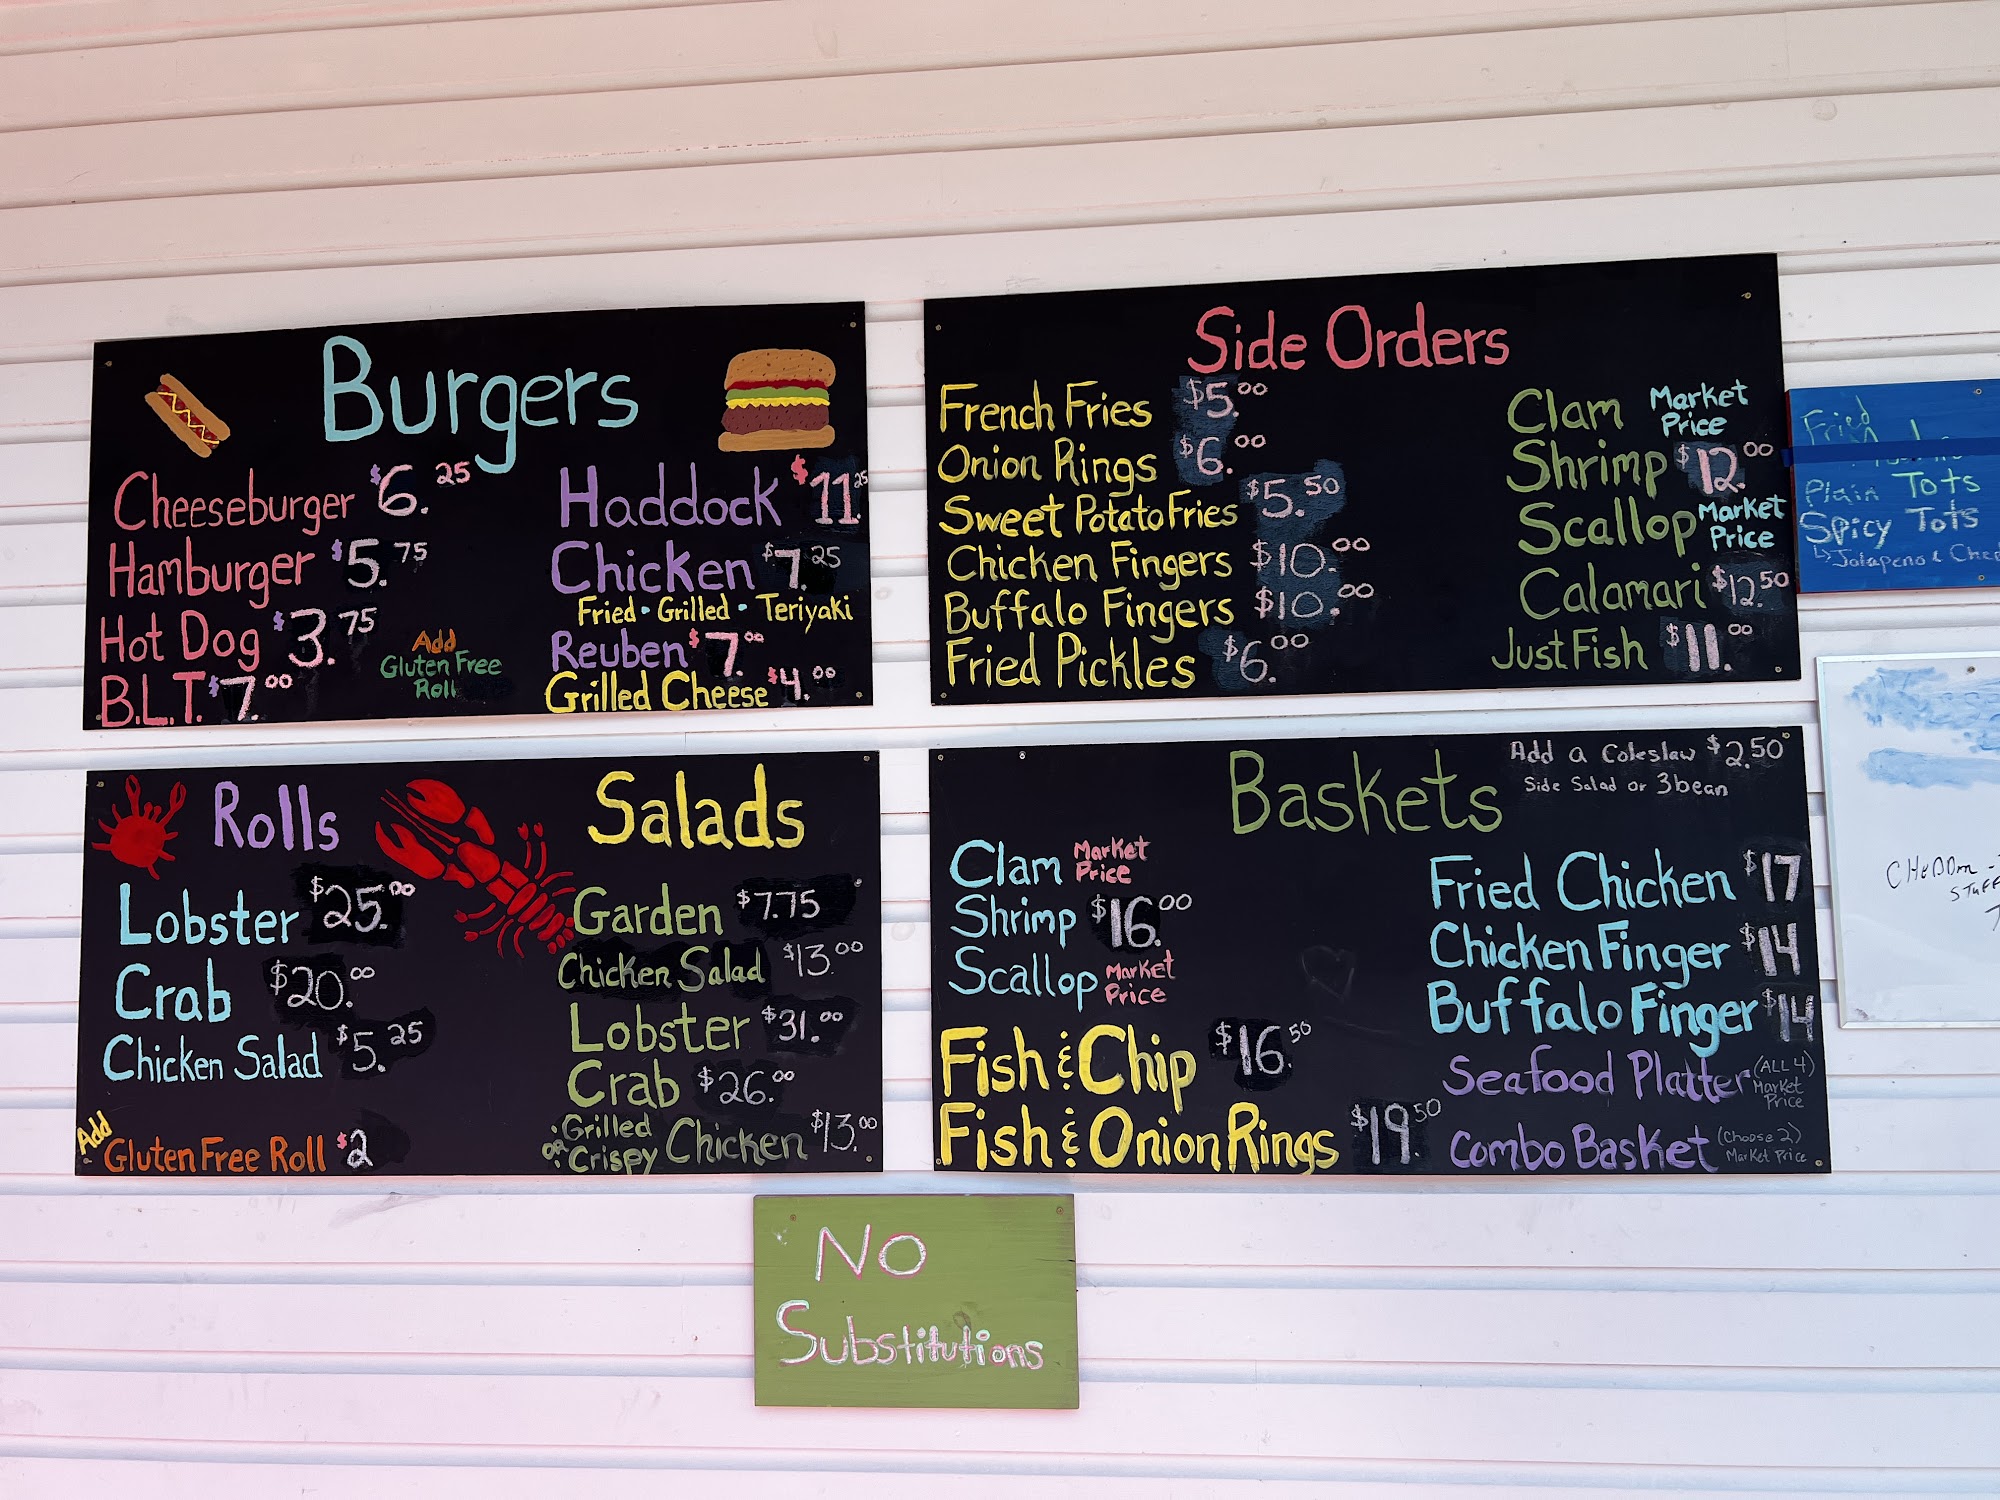 Burgers
Cheeseburger $6.25
Hamburger $5.75
Hot Dog $3.75
B.L.T. $7.00
Add
Gluten Free
Roll
Haddock $11.25
Chicken $7.25
Fried • Grilled • Teriyaki
Reuben $7.00
Grilled Cheese $4.00
Side Orders
French Fries $5.00
Onion Rings $6.00
Sweet Potato Fries $5.50
Chicken Fingers $10.00
Buffalo Fingers $10.00
Fried Pickles $6.00
Clam Market
Price
Shrimp $12.00
Scallop Market
Price
Calamari $12.50
Just Fish $11.00
Fried
Plain Tots
Spicy Tots
↳ Jalapeno &
Rolls
Lobster $25.00
Crab $20.00
Chicken Salad $5.25
Add
Gluten Free Roll $2
Salads
Garden $7.75
Chicken Salad $13.00
Lobster $31.00
Crab $26.00
Grilled
or Crispy Chicken $13.00
Baskets
Add a Coleslaw $2.50
Side Salad or 3bean
Clam Market
Price
Shrimp $16.00
Scallop Market
Price
Fish & Chip $16.50
Fish & Onion Rings $19.50
Fried Chicken $17
Chicken Finger $14
Buffalo Finger $14
Seafood Platter (ALL 4)
Market
Price
Combo Basket (Choose 2)
Market Price
No
Substitutions